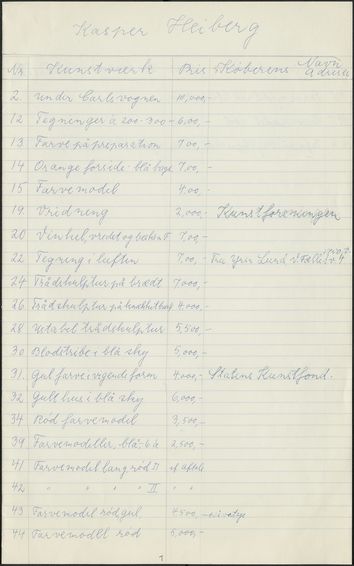 Kasper Heiberg
Nr. Kunstværk Pris Køberens Navn
Adresse
2. under Carlsvognen 10,000,-
12 Tegninger à 200-300- 600,-
13 Farve på præparation 700,-
14 Orange forside - blå bage 700,-
15 Farvemodel 400,-
19. Vridning 2,000,- Kunstforeningen
20 Vinkel, vredet og 700,-
22 Tegning i luften 700,- Fru Lund
24 Trådskulptur på brædt 7000,-
26 Trådskulptur på 4.000,-
28 trådskulptur 5,500,-
30 i blå sky 5,000,-
31. Gul farve i vigende form 4000,- Statens Kunstfond.
32 Gult hus i blå sky 6,000,-
34 Rød farvemodel 3,500,-
39 Farvemodeller, blå- 2,500,-
41 Farvemodel lang rød II
42 " " " II " "
43 Farvemodel rød, gul 4500,-
44 Farvemodel rød 5,000,-